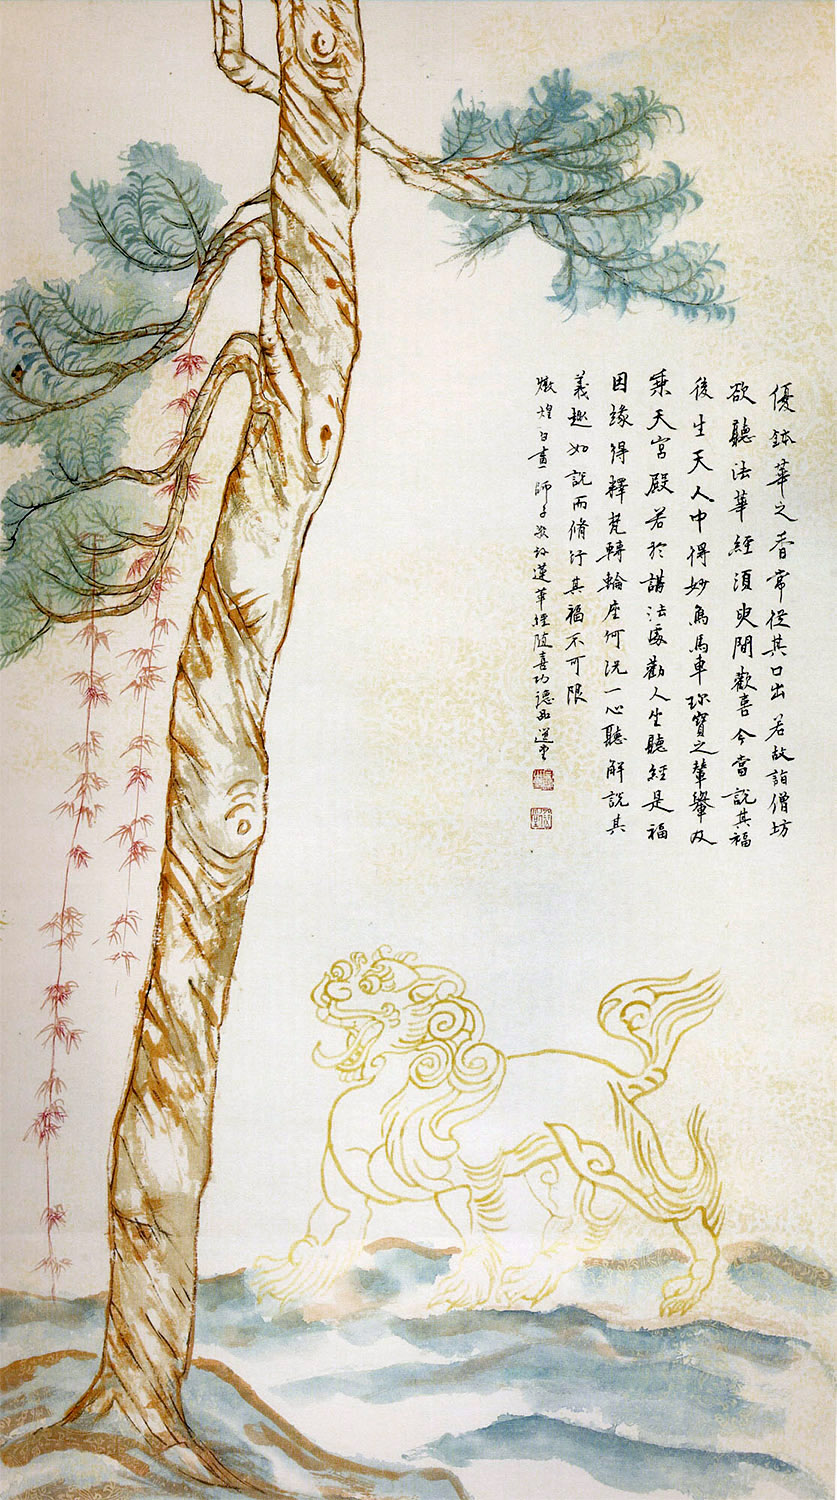 優鉢華之香常從其口出若故詣僧坊
欲聽法華經須臾間歡喜今當說其福
後生天人中得妙象馬車珍寶之輦轝及
乘天宮殿若於講法處勸人坐聽經是福
因緣得釋梵轉輪座何況一心聽解說其
義趣如說而脩行其福不可限
燉煌白畫師子蓮華經隨喜功德品選堂